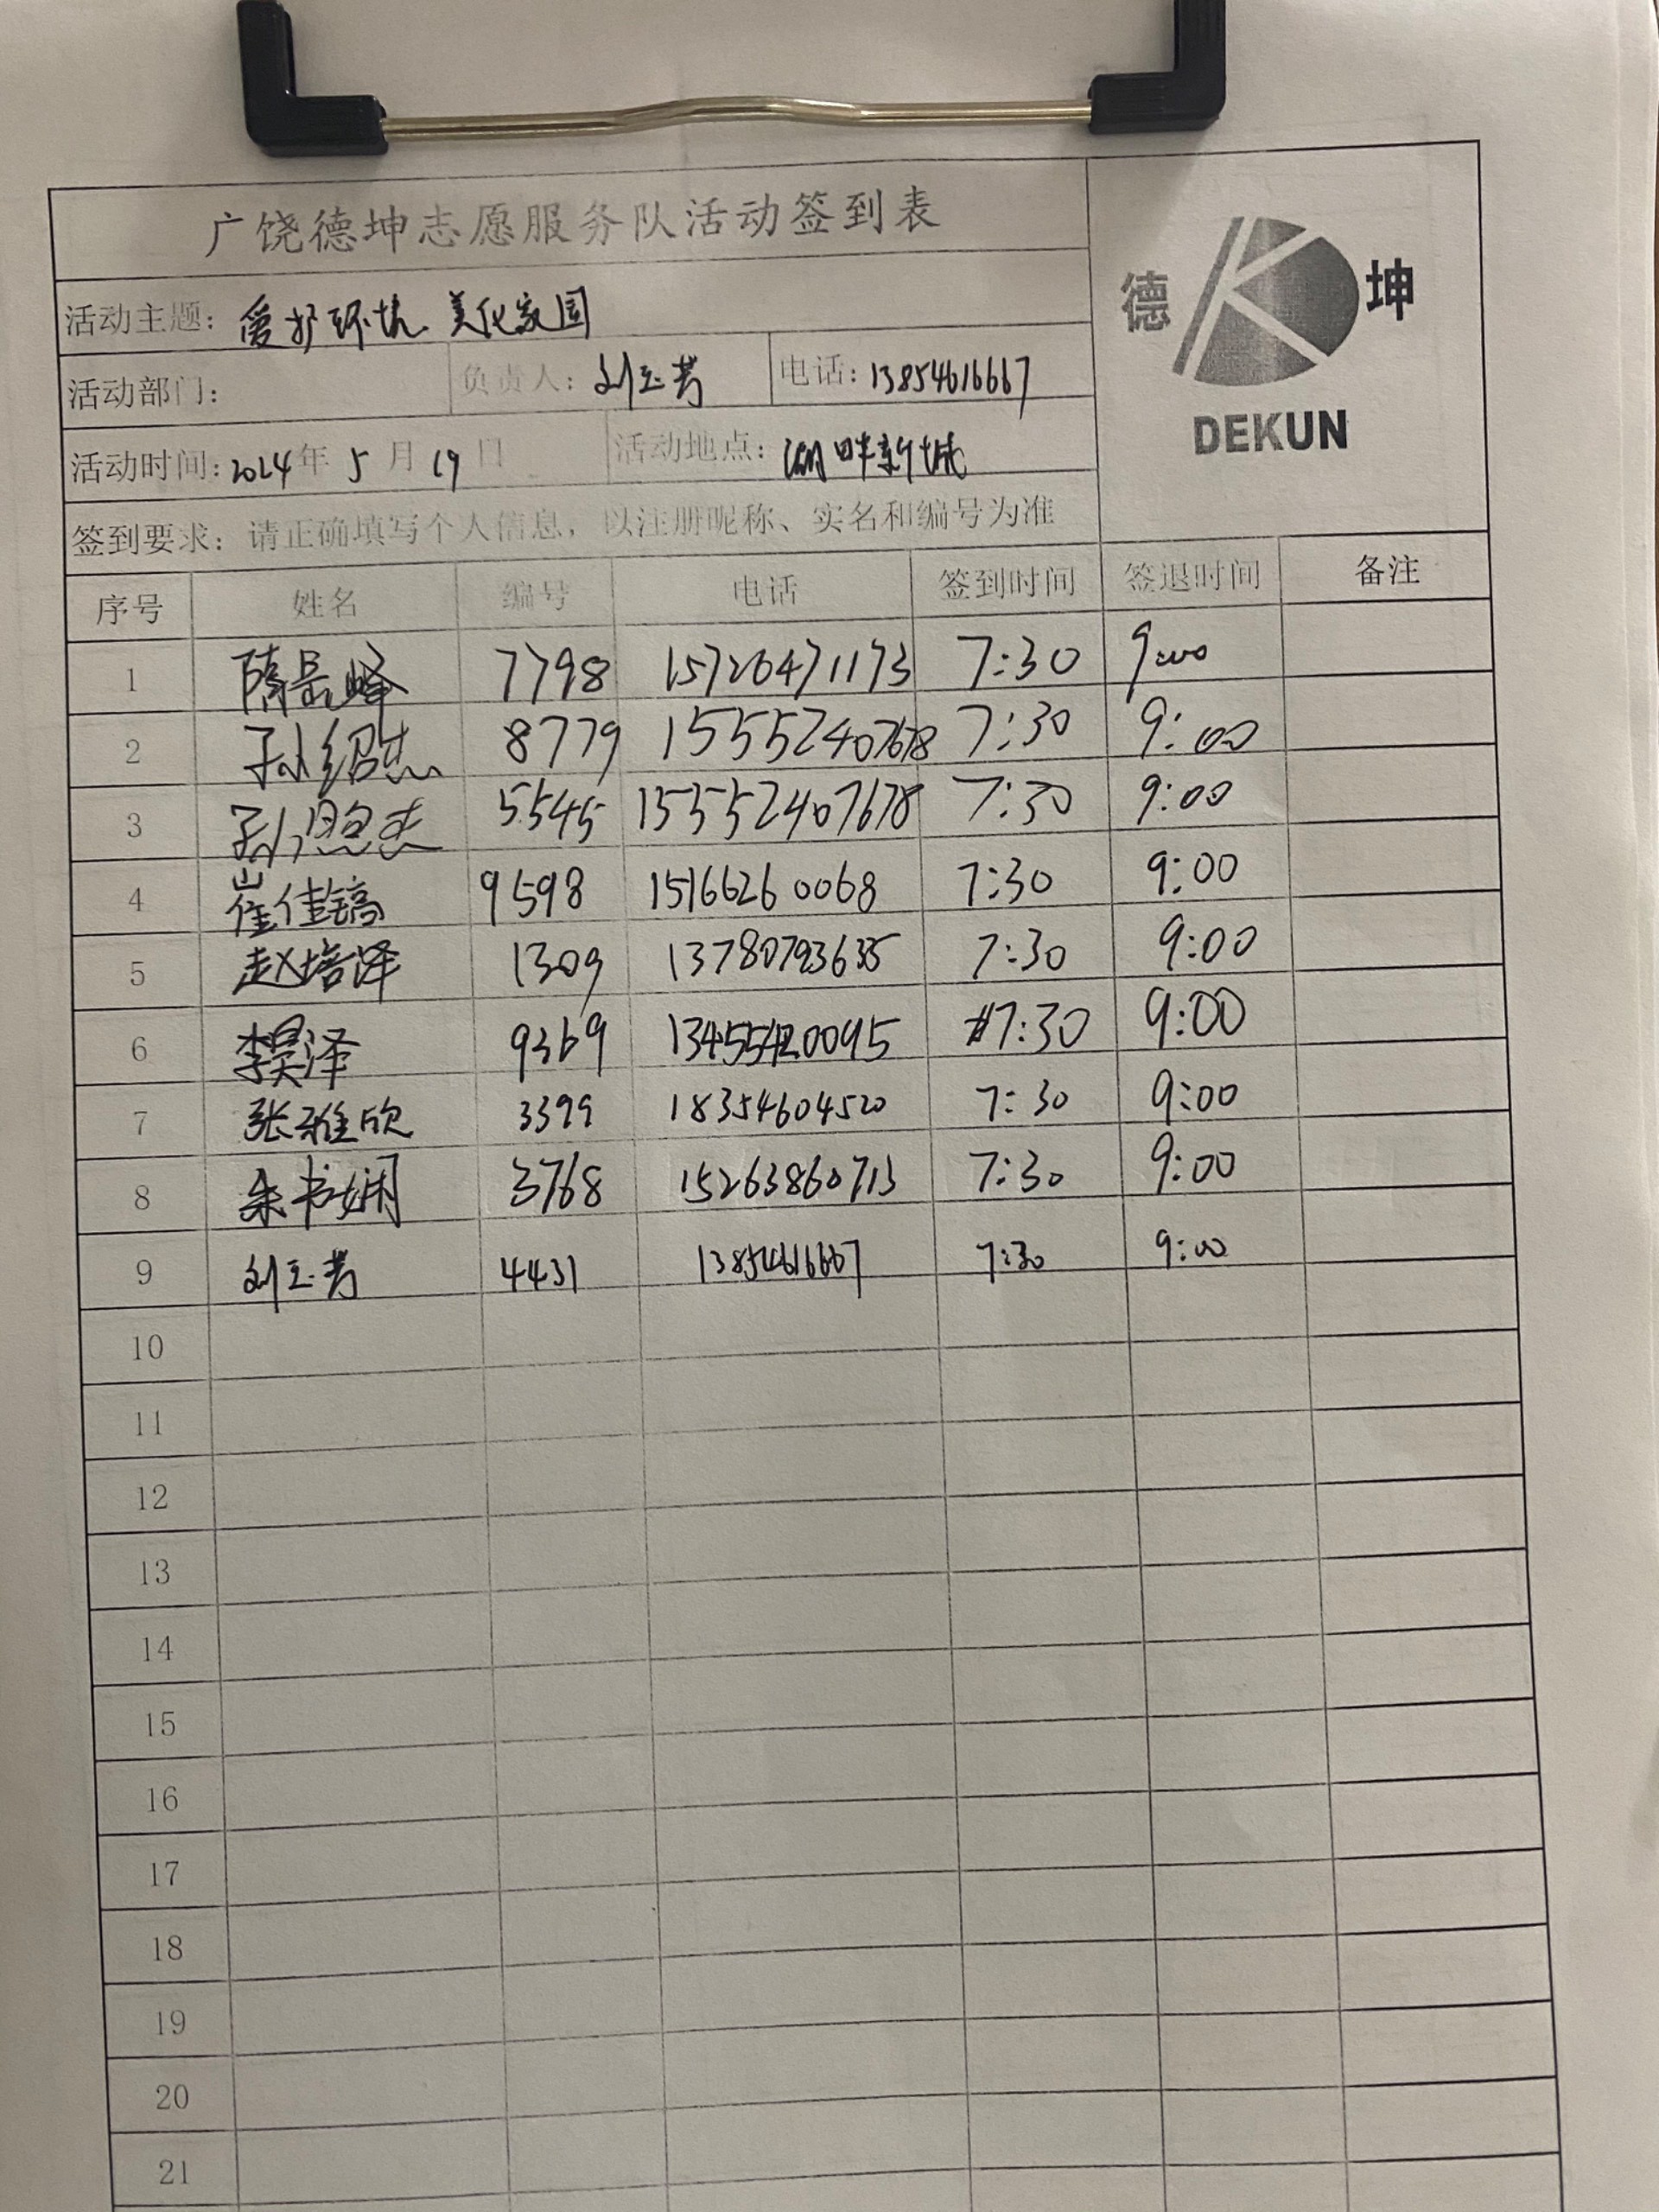 广饶德坤志愿服务队活动签到表
德 坤
DEKUN
活动主题: 爱护环境、美化家园
活动部门: 负责人: 刘玉芳 电话: 13854616667
活动时间: 2024年 5 月 19 日 活动地点: 湖畔新城
签到要求: 请正确填写个人信息, 以注册昵称、实名和编号为准
序号 姓名 编号 电话 签到时间 签退时间 备注
1 隋岳峰 7798 15726471173 7:30 9:00
2 孙绍杰 8779 15552407678 7:30 9:00
3 孙照杰 5545 15552407678 7:30 9:00
4 崔佳镐 9598 15166260068 7:30 9:00
5 赵培泽 1309 13780793635 7:30 9:00
6 李昊泽 9369 7:30 9:00
7 张雅欣 3399 18354604520 7:30 9:00
8 朱书娴 3768 15263860713 7:30 9:00
9 刘玉芳 4431 13854616667 7:30 9:00
10
11
12
13
14
15
16
17
18
19
20
21